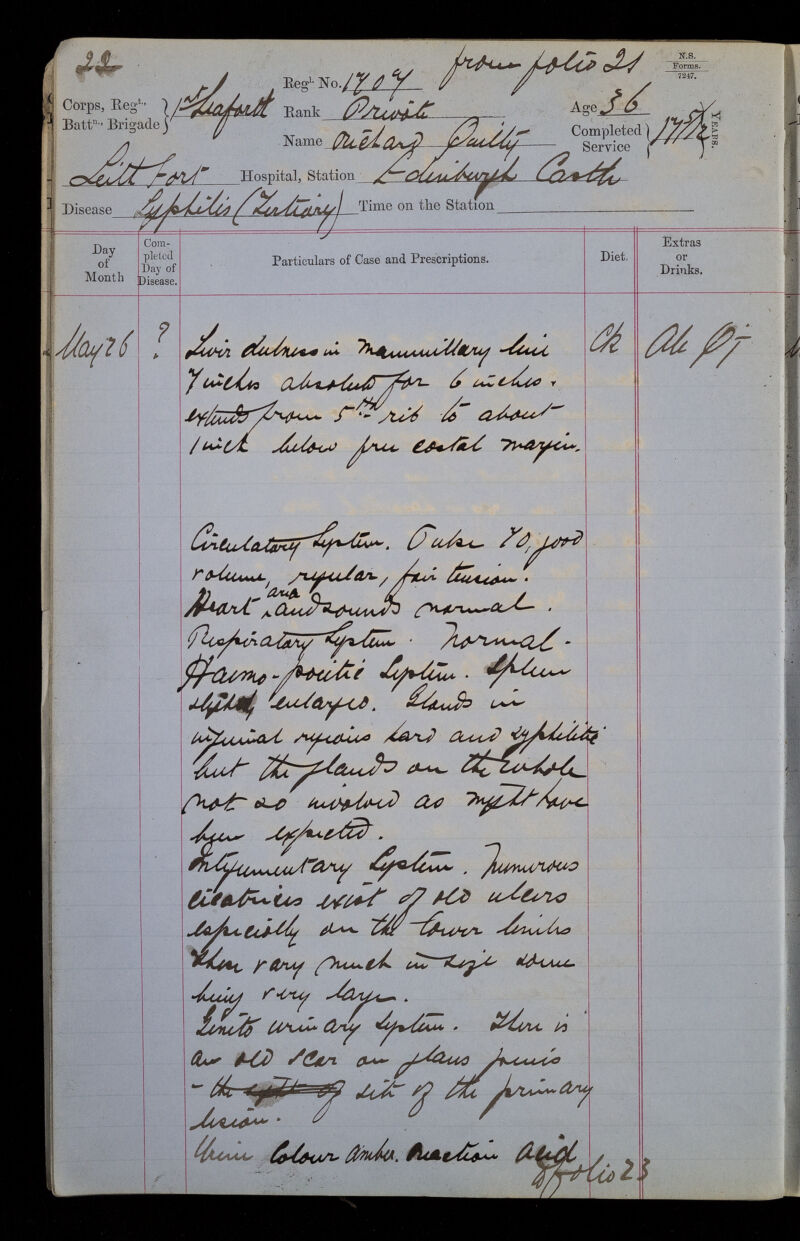 22
from folio 21
N.S.
Forms.
7247.
Corps, Regt.
Battn., Brigade } 1st Seaforth
Regl. No. 1707
Rank Private
Age 36
Name Richard Quilty
Completed Service } 17 5/12 YEARS.
Leith Fort Hospital, Station Edinburgh Castle
Disease Syphilis (Tertiary) Time on the Station
Day of Month
Completed Day of Disease.
Particulars of Case and Prescriptions.
Diet.
Extras or Drinks.
May 26 ? Liver dulness in mammillary line Ck Ale
7 inches absolute for 6 inches.
extends from 5th rib to about
1 inch below free costal margin.
Circulatory System. Pulse 70, good
volume, regular, fair tension.
Heart area and sounds normal.
Respiratory System. Normal.
Haemo-poietic System. Spleen
slightly enlarged. Glands in
inguinal regions hard and syphilitic
but the glands on the whole
not so involved as might have
been expected.
Integumentary System. Numerous
cicatrices exist of old ulcers
especially on the lower limbs
these vary much in size some
being very large.
Genito urinary System. There is
an old scar on glans penis
- the site of the primary
lesion.
Urine Colour amber. Reaction acid
folio 23